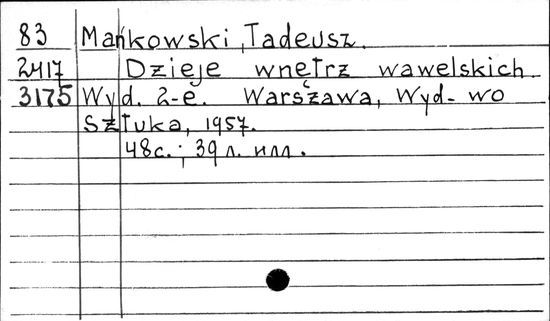 83 Mańkowski, Tadeusz.
2417 Dzieje wnętrz wawelskich.
3175 Wyd. 2-e. Warszawa, Wyd-wo
Sztuka, 1957.
48с.; 39 л. илл.